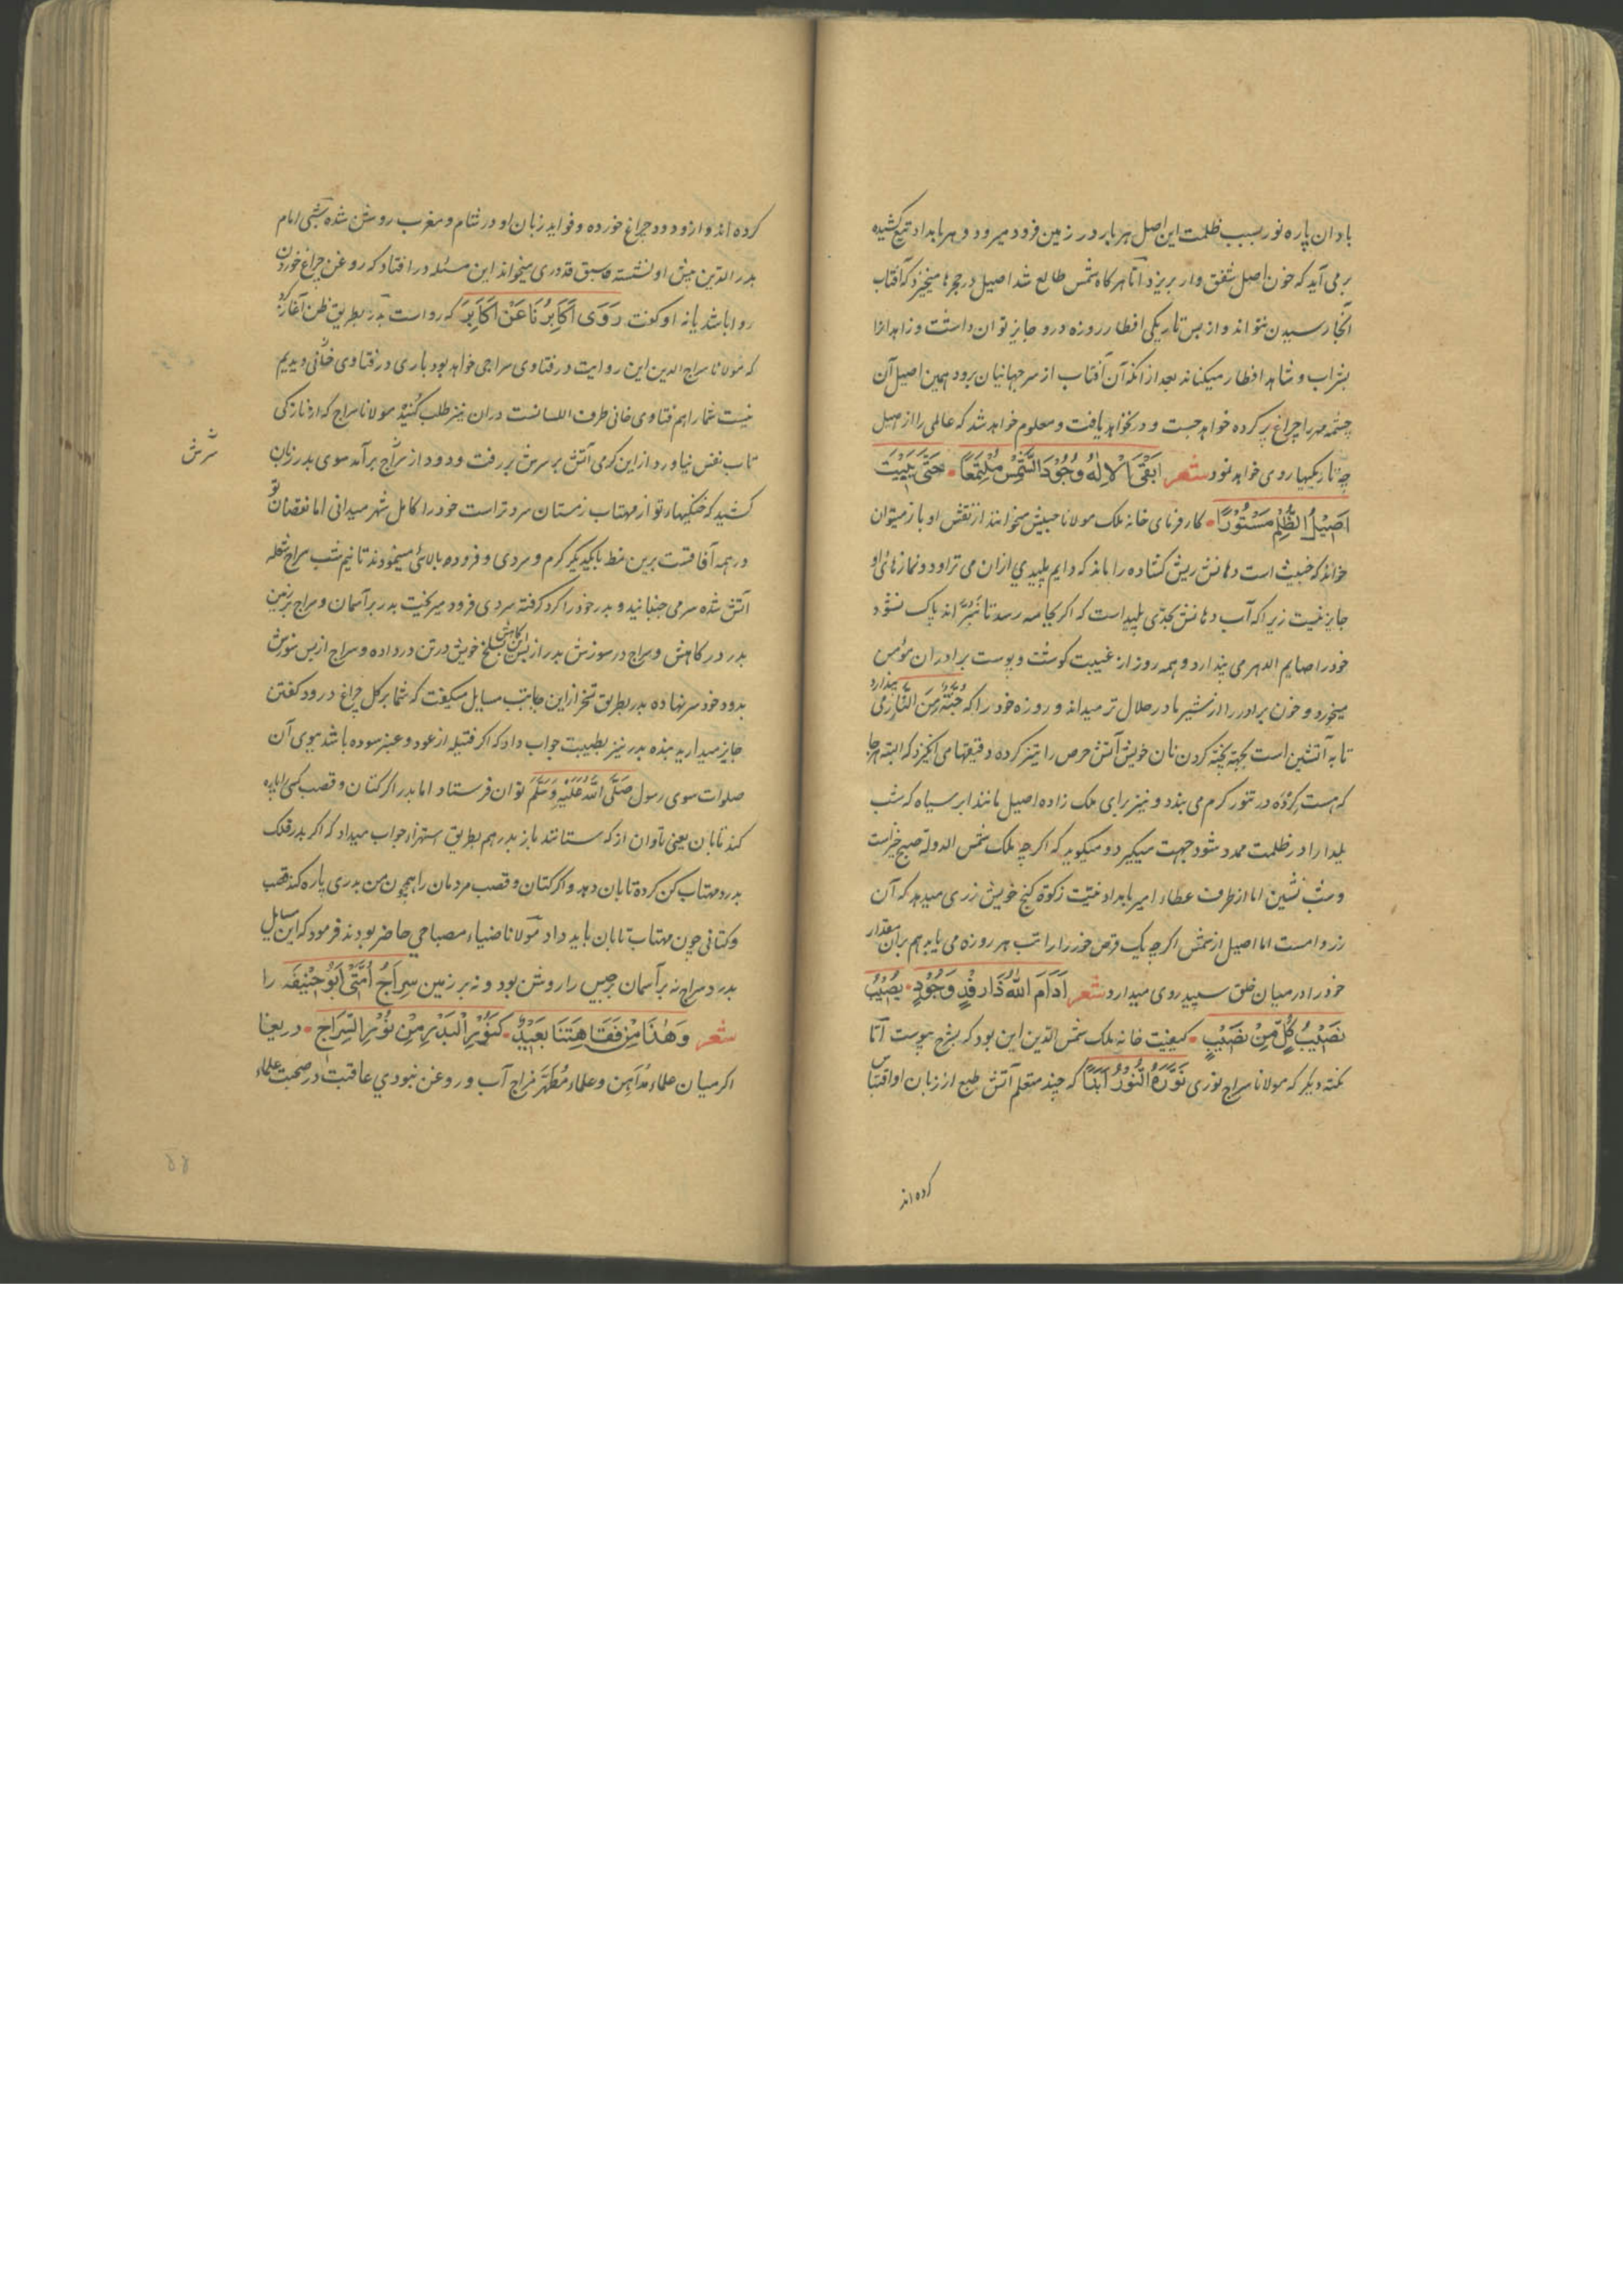 بادان پاره نور بسبب ظلمت این اصل هر بار در زمین فرود میرود و هر بامداد تیغ کشیده
بر می آید که خون اصیل شفق وار بریزد اما هر کاه شمس طالع شد اصیل در حجرها میخیزد که آفتاب
آنجا رسیدن نتواند و از بس تاریکی افطار روزه درو جایز توان داشت و زاهد انرا
بشراب و شاهد افطار میکناند بعد از آنکه آن آفتاب از سر جهانیان برود همین اصیل آن
چشمه مهر را چراغ پر کرده خواهد جست و در نخواهد یافت و معلوم خواهد شد که عالمی را از اصیل
چه تاریکیها روی خواهد نمود شعر ابقی الاله وجود الشمس ملتمعا • حتی یبیت
اصیل الظلم مستورا • کارفرمای خانه ملک مولانا حبیش میخوانند از نقش او باز میتوان
خواند که خبیث است دهانش ریش کشاده را ماند که دایم پلیدی ازان می تراود و نمازهای او
جایز نیست زیرا که آب دهانش بحدی پلید است که اکر بجامه رسد تا نبرند پاک نشود
خود را صایم الدهر می پندارد و همه روز از غیبت کوشت و پوست برادران مؤمن
میخورد و خون برادر را از شیر مادر حلال تر میداند و روزه خود را که جنة من النار می پندارد
تابه آتشین است بجهة پخته کردن نان خویش آتش حرص را تیز کرده دقیقها می انکیزد که البته هر جا
که هست کرده در تنور کرم می بندد و نیز برای ملک زاده اصیل مانند ابر سیاه که شب
یلدا را در ظلمت ممد شود جهت میکیرد و میکوید که اکرچه ملک شمس الدوله صبح خیز است
و شب نشین اما از طرف عطاء امیر بامداد نیت زکوة کنج خویش زری میدهد که آن
زر وامست اما اصیل از شمس اکرچه یک قرص خور را راتب هر روزه می یابد هم بران مقدار
خود را در میان خلق سپید روی میدارد شعر ادام الله ذا رفد وجود • یصیب
نصیب کل من نصیب • کیفیت خانه ملک شمس الدین این بود که بشرح پیوست اما
نکته دیکر که مولانا سراج نوری نوره النور ابدا که چند متعلم آتش طبع از زبان او اقتباس
کرده اند
کرده اند و ازو دود چراغ خورده و فواید زبان او در شام و مغرب روشن شده شبی امام
بدر الدین پیش او نشسته سبق قدوری میخواند این مسئله در افتاد که روغن چراغ خوردن
روا باشد یا نه او کفت روی اکابرنا عن اکابر که رواست بدر بطریق ظن آغاز کرد
که مولانا سراج الدین این روایت در فتاوی سراجی خواهد بود باری در فتاوی خانی دیدیم
نیست شما را هم فتاوی خانی طرف اللسانست دران نیز طلب کنید مولانا سراج که از نازکی
تاب نفس نیاورد از این کرمی آتش بر سرش بر رفت و دود از سراج برآمد سوی بدر زبان
کشید که خنکیهاء تو از مهتاب زمستان سردتر است خود را کامل شهر میدانی اما نقصان تو
در همه آفاقست برین نمط بایکدیکر کرم و سردی و فروده بالائی مینمودند تا نیم شب سراج شعله
آتش شده سر می جنبانید و بدر خود را کرد کرفته سردی فرود میریخت بدر بر آسمان و سراج بر زمین
بدر در کاهش و سراج در سوزش بدر از بس این کاهش سلخ خویش در تن در داده و سراج از بس سوزش
بدود خود سر نهاده بدر بطریق تسخر از این جانب مسایل میکفت که شما بر کل چراغ درود کفتن
جایز میدارید بنده بدر نیز بطیبت جواب داد که اکر فتیله از عود و عنبر سوده باشد ببوی آن
صلوات سوی رسول صلی الله علیه وسلم توان فرستاد اما بدر اکر کتان و قصب کسی را پاره
کند تابان یعنی تاوان از که ستانند باز بدر هم بطریق استهزا جواب میداد که اکر بدر فلک
بدرد مهتاب کن کرده تابان دهد و اکر کتان و قصب مردمان را همچون من بدری پاره کند قصب
و کتانی چون مهتاب تابان باید داد مولانا ضیاء مصباحی حاضر بودند فرمود که این مسایل
بدر و سراج نه بر آسمان برجیس را روشن بود و نه بر زمین سراج امتی ابو حنیفه را
شعر وهذا من فقاهتنا بعید • کنور البدر من نور السراج • دریغا
اکر میان علماء مداهن و علماء مطهر مزاج آب و روغن نبودی عاقبت در صحبت علماء
سرش